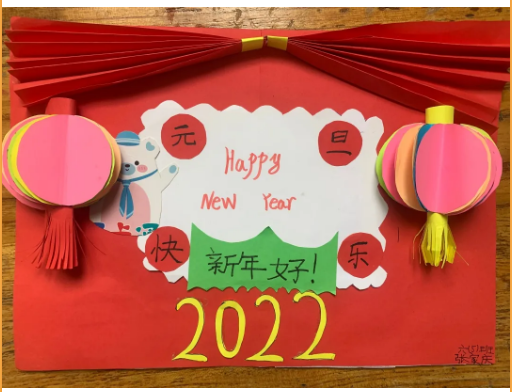 元 旦
Happy
New Year
快 乐
新年好!
2022